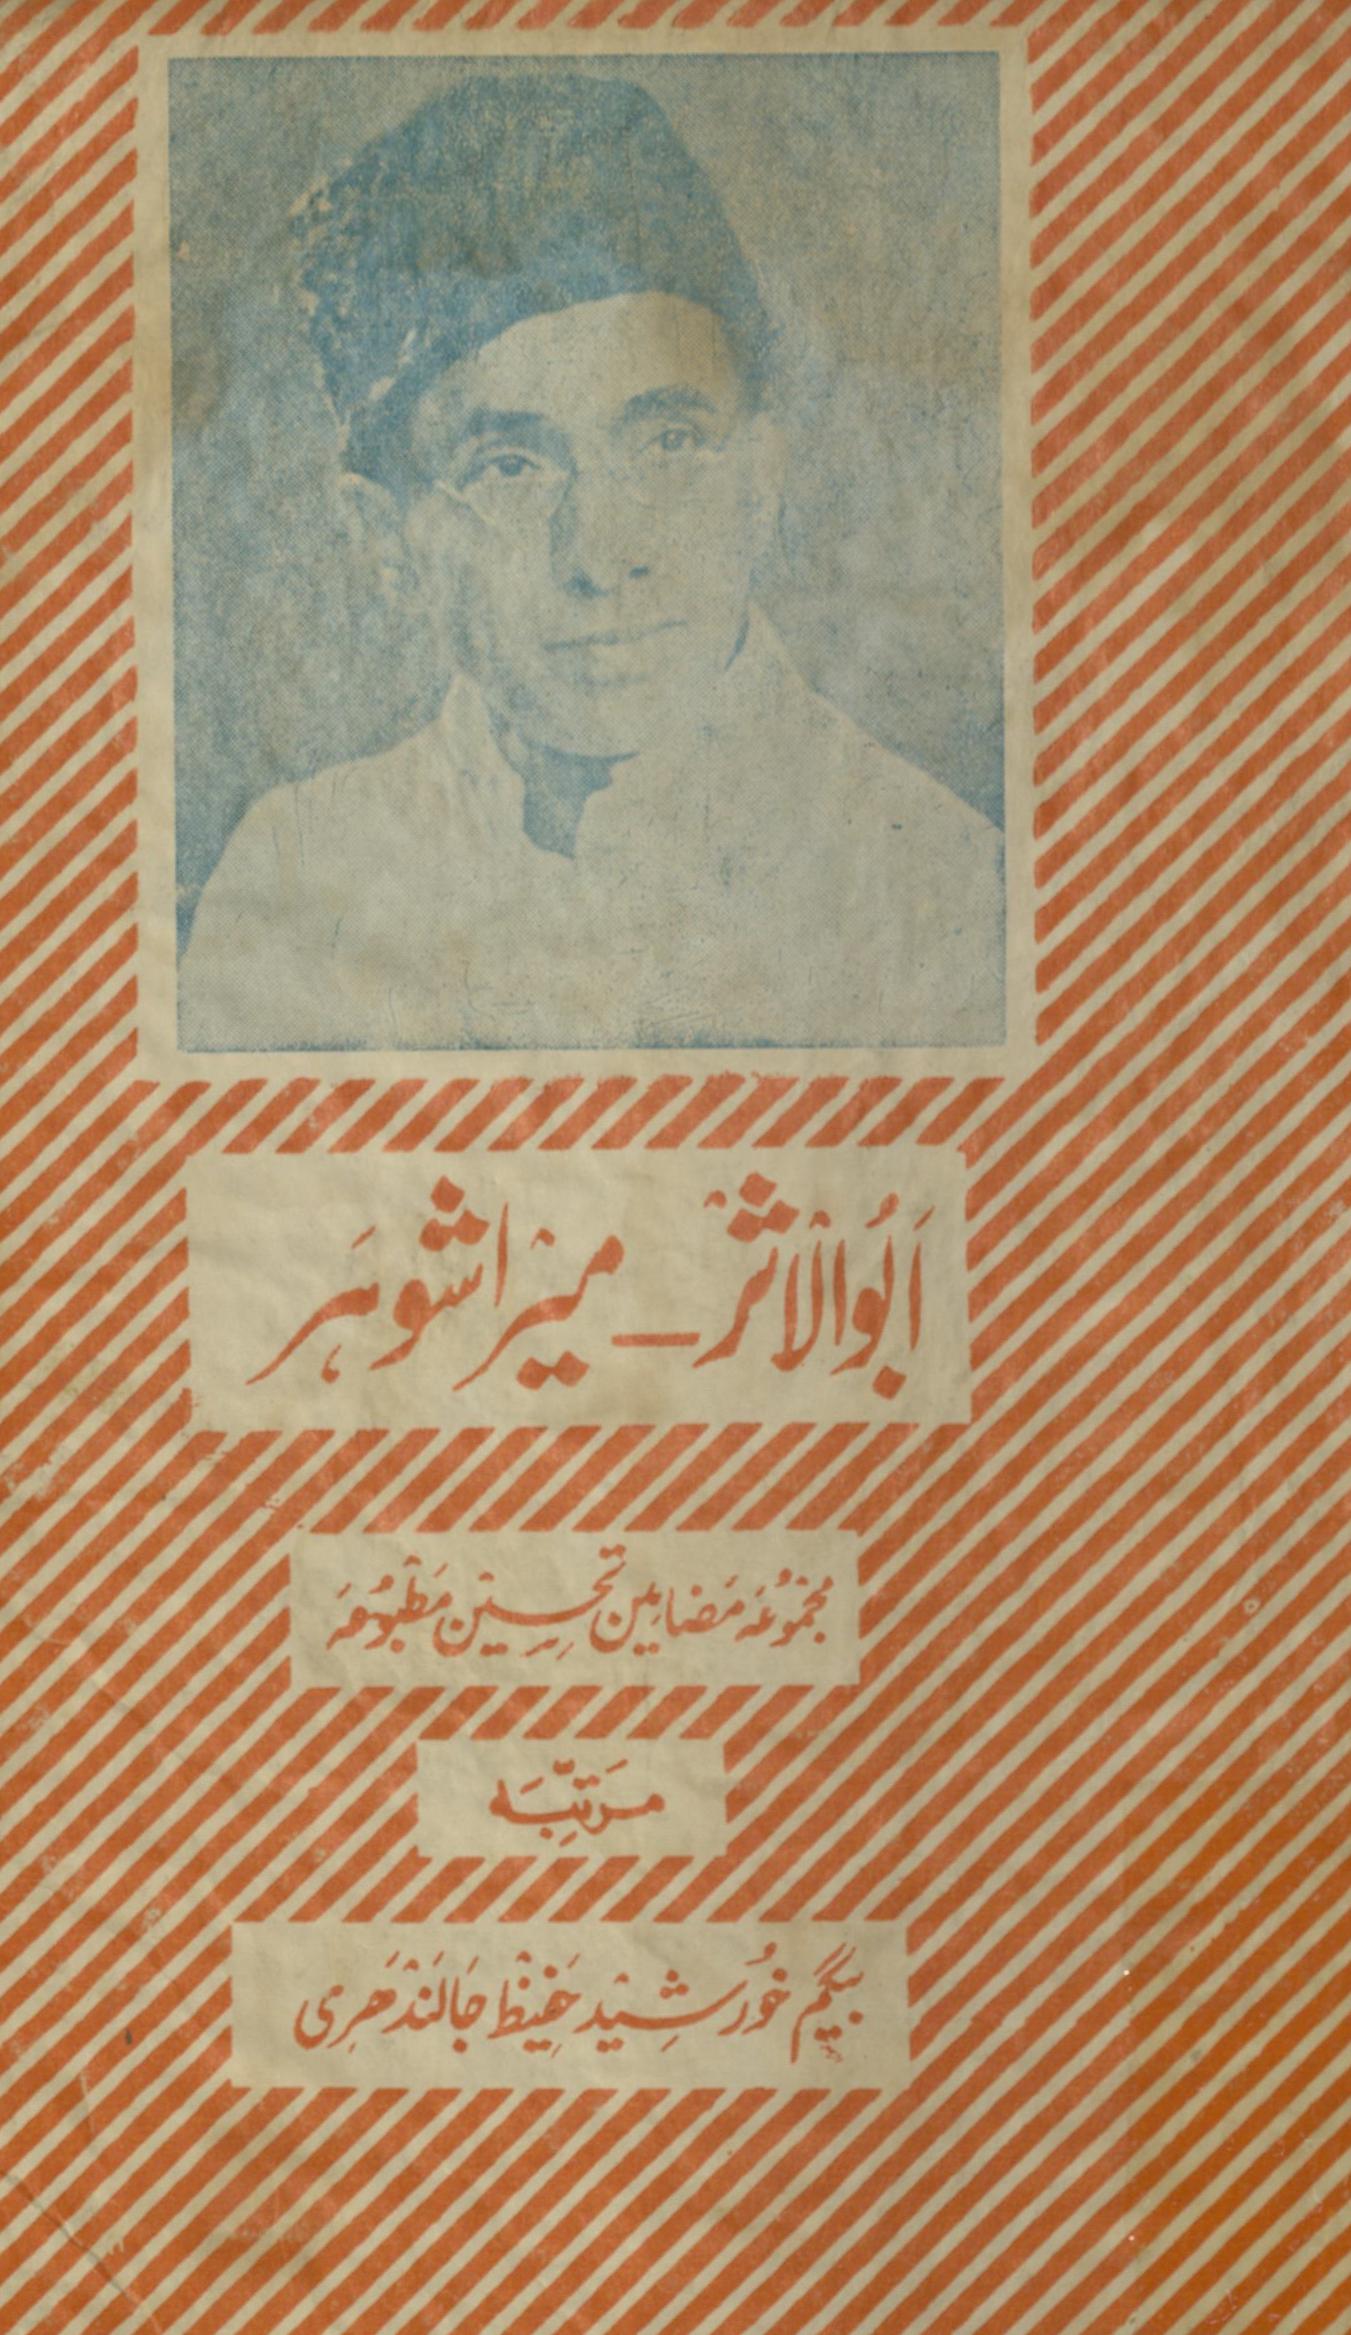 اَبُوالْاثرْ ــ میْرا شوہَر
مجْمُوعَہ مَضامِین تحسِیْن مَطْبُوعَہ
مرَتّبَہ
بیگم خوُرشِیْد حَفِیْظ جَالَنْدَھَرِی